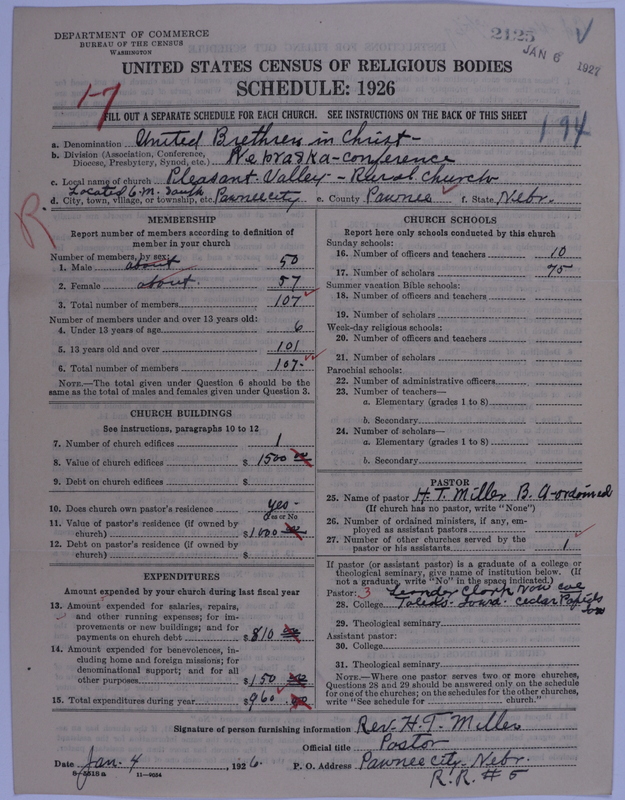 DEPARTMENT OF COMMERCE
BUREAU OF THE CENSUS
WASHINGTON
2125
JAN 6 1927
UNITED STATES CENSUS OF RELIGIOUS BODIES
SCHEDULE: 1926
1-7
FILL OUT A SEPARATE SCHEDULE FOR EACH CHURCH. SEE INSTRUCTIONS ON THE BACK OF THIS SHEET
194
a. Denomination United Brethren in Christ-
b. Division (Association, Conference, Diocese, Presbytery, Synod, etc.) Nebraska-conference
c. Local name of church Pleasant Valley - Rural Church
Located 6 m. South
d. City, town, village, or township, etc. Pawnee city e. County Pawnee f. State Nebr.
R
MEMBERSHIP
Report number of members according to definition of
member in your church
Number of members, by sex:
1. Male about 50
2. Female about. 57
3. Total number of members 107
Number of members under and over 13 years old:
4. Under 13 years of age 6
5. 13 years old and over 101
6. Total number of members 107-
NOTE.—The total given under Question 6 should be the
same as the total of males and females given under Question 3.
CHURCH BUILDINGS
See instructions, paragraphs 10 to 12
7. Number of church edifices 1
8. Value of church edifices $ 1500 00
9. Debt on church edifices $
10. Does church own pastor's residence yes-
Yes or No
11. Value of pastor's residence (if owned by
church) $ 1000 00
12. Debt on pastor's residence (if owned by
church) $
EXPENDITURES
Amount expended by your church during last fiscal year
13. Amount expended for salaries, repairs,
and other running expenses; for im-
provements or new buildings; and for
payments on church debt $ 810 00
14. Amount expended for benevolences, in-
cluding home and foreign missions; for
denominational support; and for all
other purposes $ 150 00
15. Total expenditures during year $ 960 .00
CHURCH SCHOOLS
Report here only schools conducted by this church
Sunday schools:
16. Number of officers and teachers 10
17. Number of scholars 75
Summer vacation Bible schools:
18. Number of officers and teachers
19. Number of scholars
Week-day religious schools:
20. Number of officers and teachers
21. Number of scholars
Parochial schools:
22. Number of administrative officers
23. Number of teachers—
a. Elementary (grades 1 to 8)
b. Secondary
24. Number of scholars—
a. Elementary (grades 1 to 8)
b. Secondary
PASTOR
25. Name of pastor H. T. Miller B. A-ordained
(If church has no pastor, write "None")
26. Number of ordained ministers, if any, em-
ployed as assistant pastors
27. Number of other churches served by the
pastor or his assistants 1
If pastor (or assistant pastor) is a graduate of a college or
theological seminary, give name of institution below. (If
not a graduate, write "No" in the space indicated.)
Pastor: 3 Leander Clark Now coe
28. College Toledo-Iowa- Cedar Rapids Iowa
29. Theological seminary
Assistant pastor:
30. College
31. Theological seminary
NOTE.—Where one pastor serves two or more churches,
Questions 28 and 29 should be answered only on the schedule
for one of the churches; on the schedules for the other churches,
write "See schedule for church."
Signature of person furnishing information Rev. H. T. Miller
Official title Pastor
Date Jan. 4, 1926. P. O. Address Pawnee city. Nebr.
R. R. # 5
8-5518a 11-9054